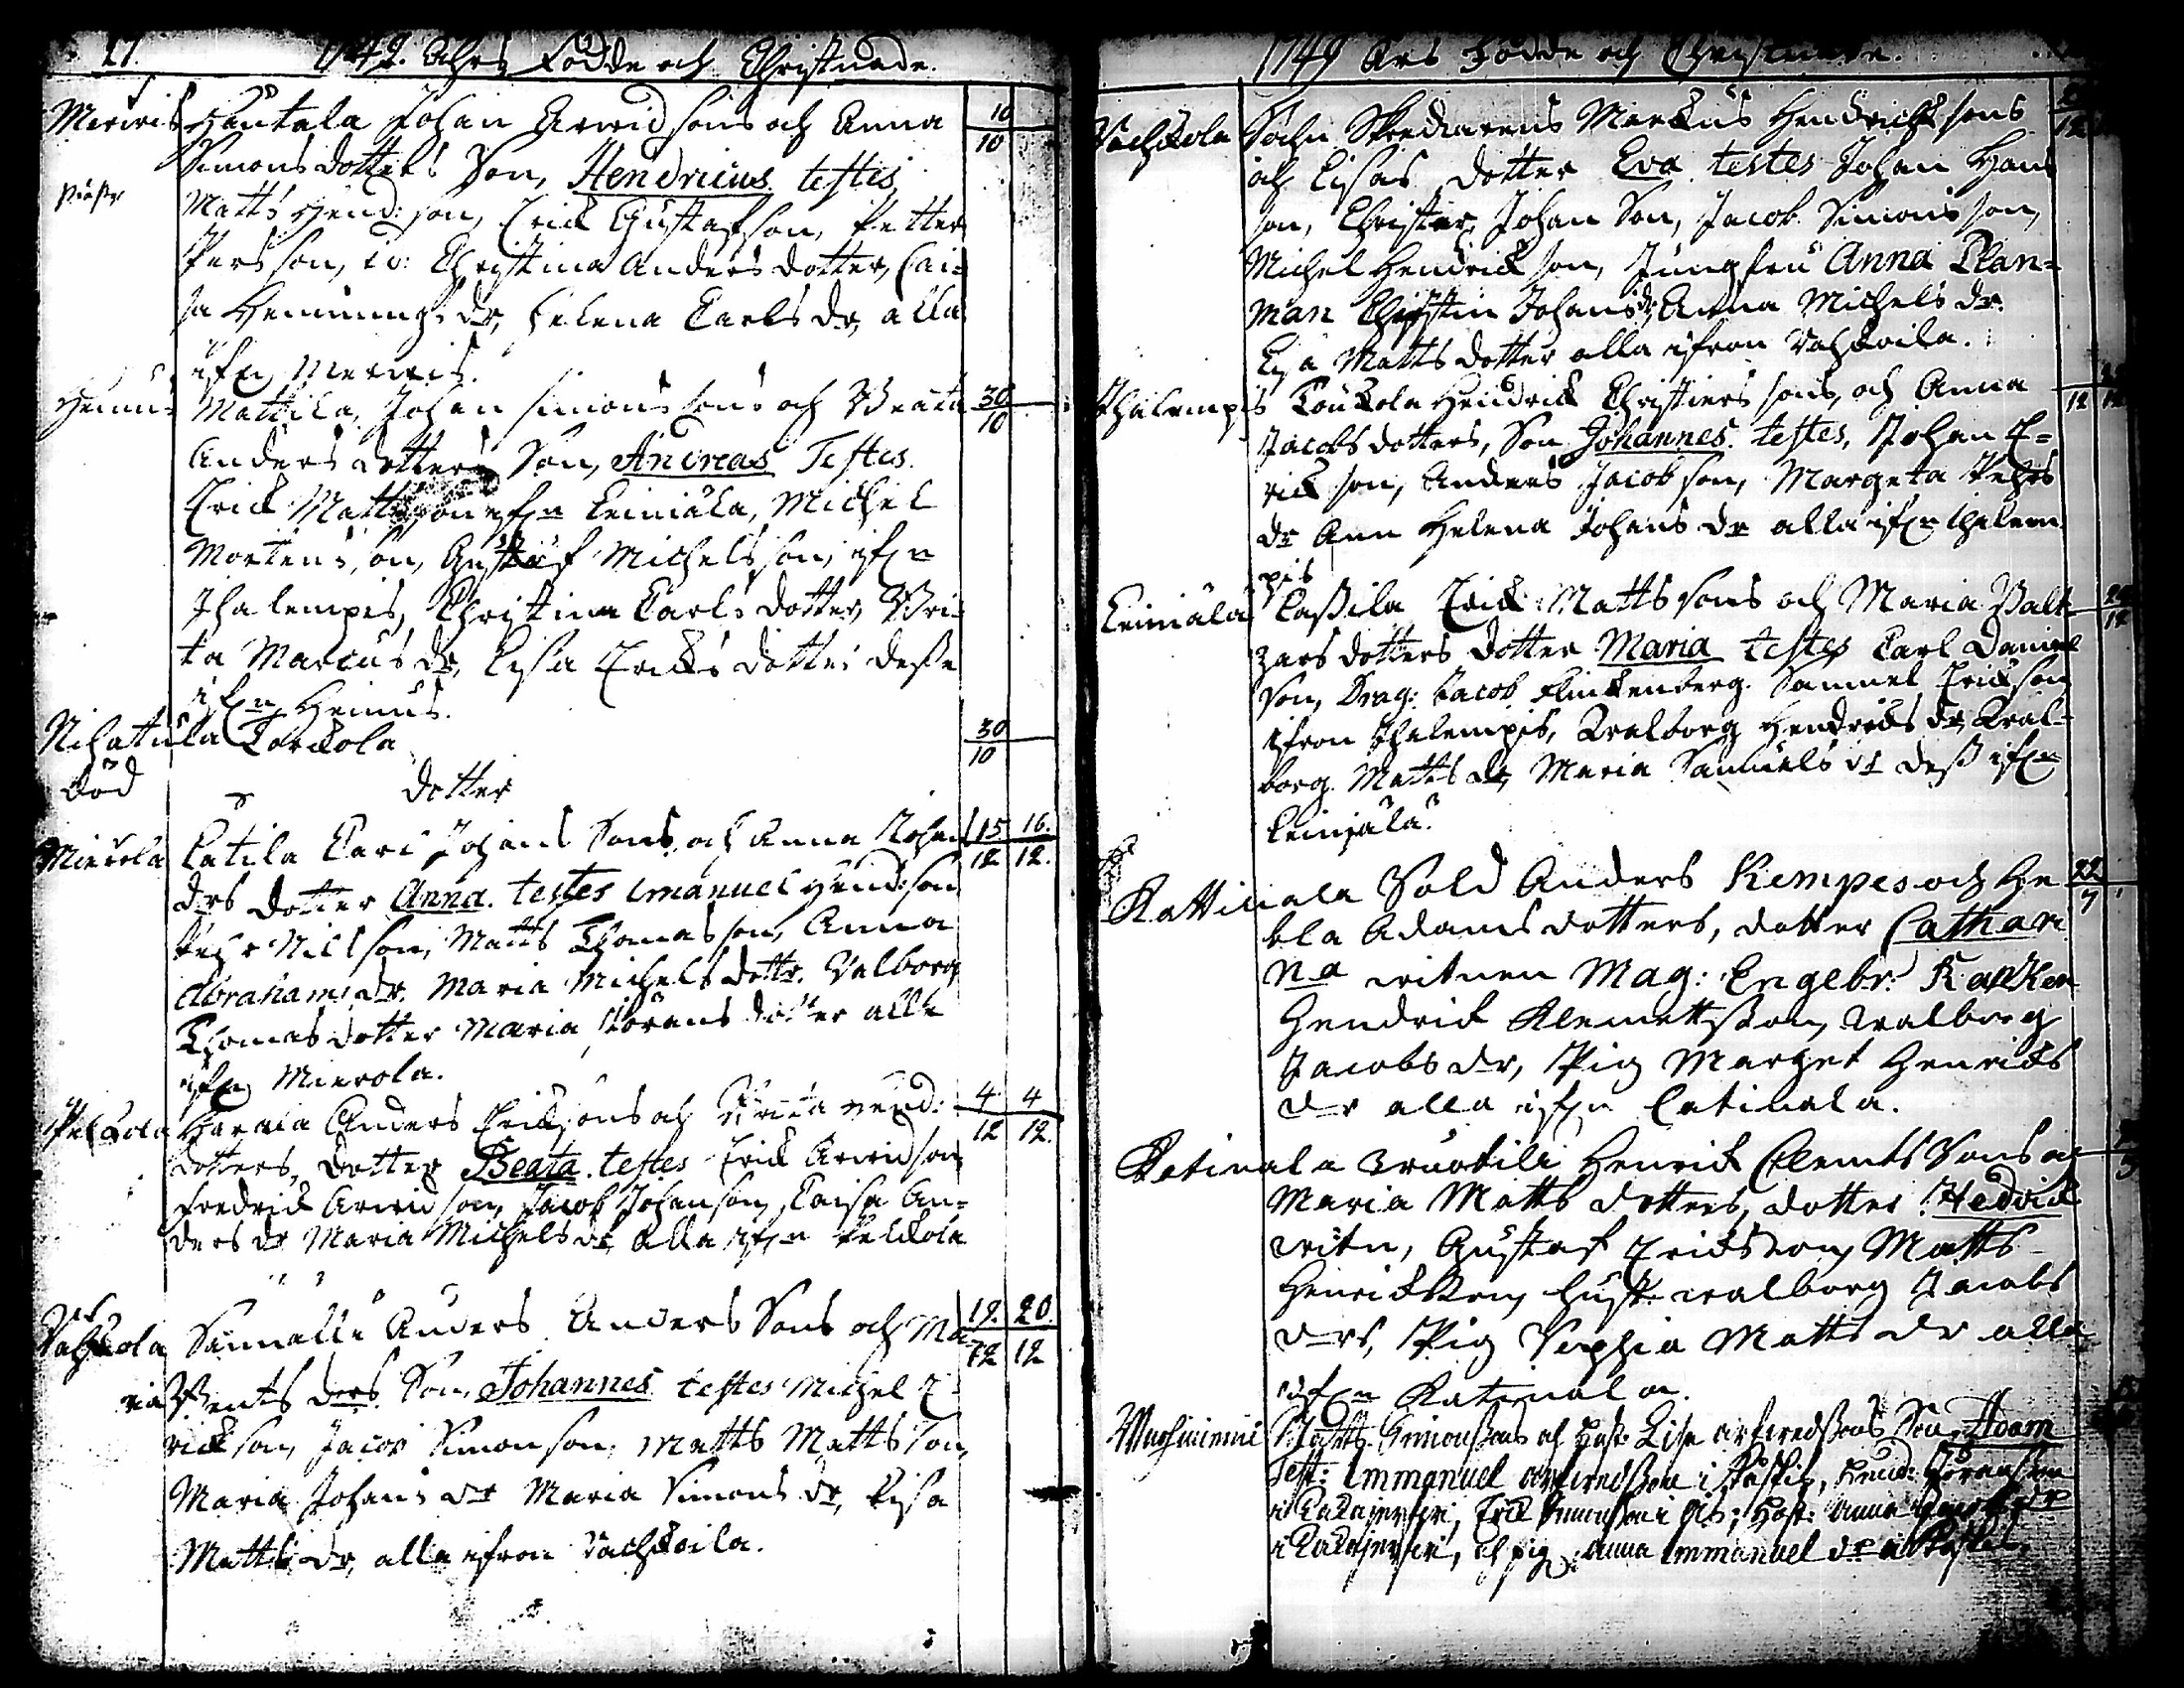 27. 1749. Åhrs Födde och Christnade.
Merwis Hautala Johan Arwid sons och Anna 10/10
Simons dotters Son, Hendricus testes
Matts Hend: son, Erick Gustafson, Petter
Pers son, Christina Anders dotter, Cai-
sa Hennings dr, Helena Carls dr, alla
ifrn Merwis.
Heinus Mattila, Johan Simons sons och Beata 30/10
Anders dotters Son, Andreas Testes.
Erick Matts son ifrn Leiniälä, Michel
Mortens son, Gustaf Michels son, ifrn
Ihalempis, Christina Carls dotter, Bri-
ta Marcus dr, Lisa Ericks dotter desse
ifrn Heinus.
Nihatula Torckola 30/10
död dotter
Mierola Catila Carl Johans Sons och Anna Johans 15/12 16/12.
drs dotter Anna. testes Emanuel Hend: son
Pehr Nilsson, Matts Thomas son, Anna
Abrahams dr. Maria Michels dottr. Valborg
Thomas dotter Maria Görans dotter alla
ifrn Mierola.
Pelkola Anders Ericksons och Hend: 4/12 4/12.
dotters, dotter Beata. testes Erick Arwidson
Fredrick Arwidson, Jacob Johanson, Caisa An-
ders dr Maria Michels dr, alla ifrn Pelckola
Wachkola Simalli Anders Anders Sons och Ma 19./12 20./12
ria Bents drs Son, Johannes testes Michel E-
rickson, Jacob Simonson, Matts Matts son,
Maria Johans dr Maria Simons dr, Lisa
Matts dr, alla ifron Vachkoila.
1749 Års Födde och Christnade.
Vachkola Sochn Skreddarens Markus Hendrichsons
och Lisas dotter Eva testes Johan Hans
son, Christer Johan Son, Jacob Simonsson,
Michel Hendrickson, Jungfru Anna Plan-
man Christin Johans dr, Anna Michels dr.
Lisa Matts dotter alla ifron Vachkoila.
Ihalempis Touckola Hendrick Christiers sons, och Anna
Jacobs dotters, Son Johannes. testes, Johan E-
rick son, Anders Jacob son, Margeta Pehrs
dr Ann Helena Johans dr alla ifrn Ihalem
pis
Leiniälä Cassila Erick Matts sons och Maria Balt
zars dotters dotter Maria testes Carl Daniel
Son, Drag: Jacob Flinckenberg. Samuel Erickson
ifron Ihalempis, Walborg Hendricks dr Wal-
borg Matts dr, Maria Samuels dr dess ifrn
Leinjälä.
Kattinala Sold Anders Kempes och He 22/7
bla Adams dotters, dotter Cathari
na witnen Mag: Engelbr:
Hendrick Klemettsson, Walborg
Jacobs dr, Pig Marget Henricks
dr alla ifrn Catinala.
Katinala Henrick Clemets Sons och
Maria Matts dotters, dotter Hedvick
witn, Gustaf Erickson, Matts
Henricksson, Hust. Walborg Jacobs
drs, Pig Sophia Matts dr alla
ifrn Katinala.
Matts Simonssons och Hust. Lisa Arfwedssons Son, Adam
Test: Immanuel Arfwedsson i Hend: Göransson
i Erick Hust: Anna
i och pig. Anna Immanuel dr